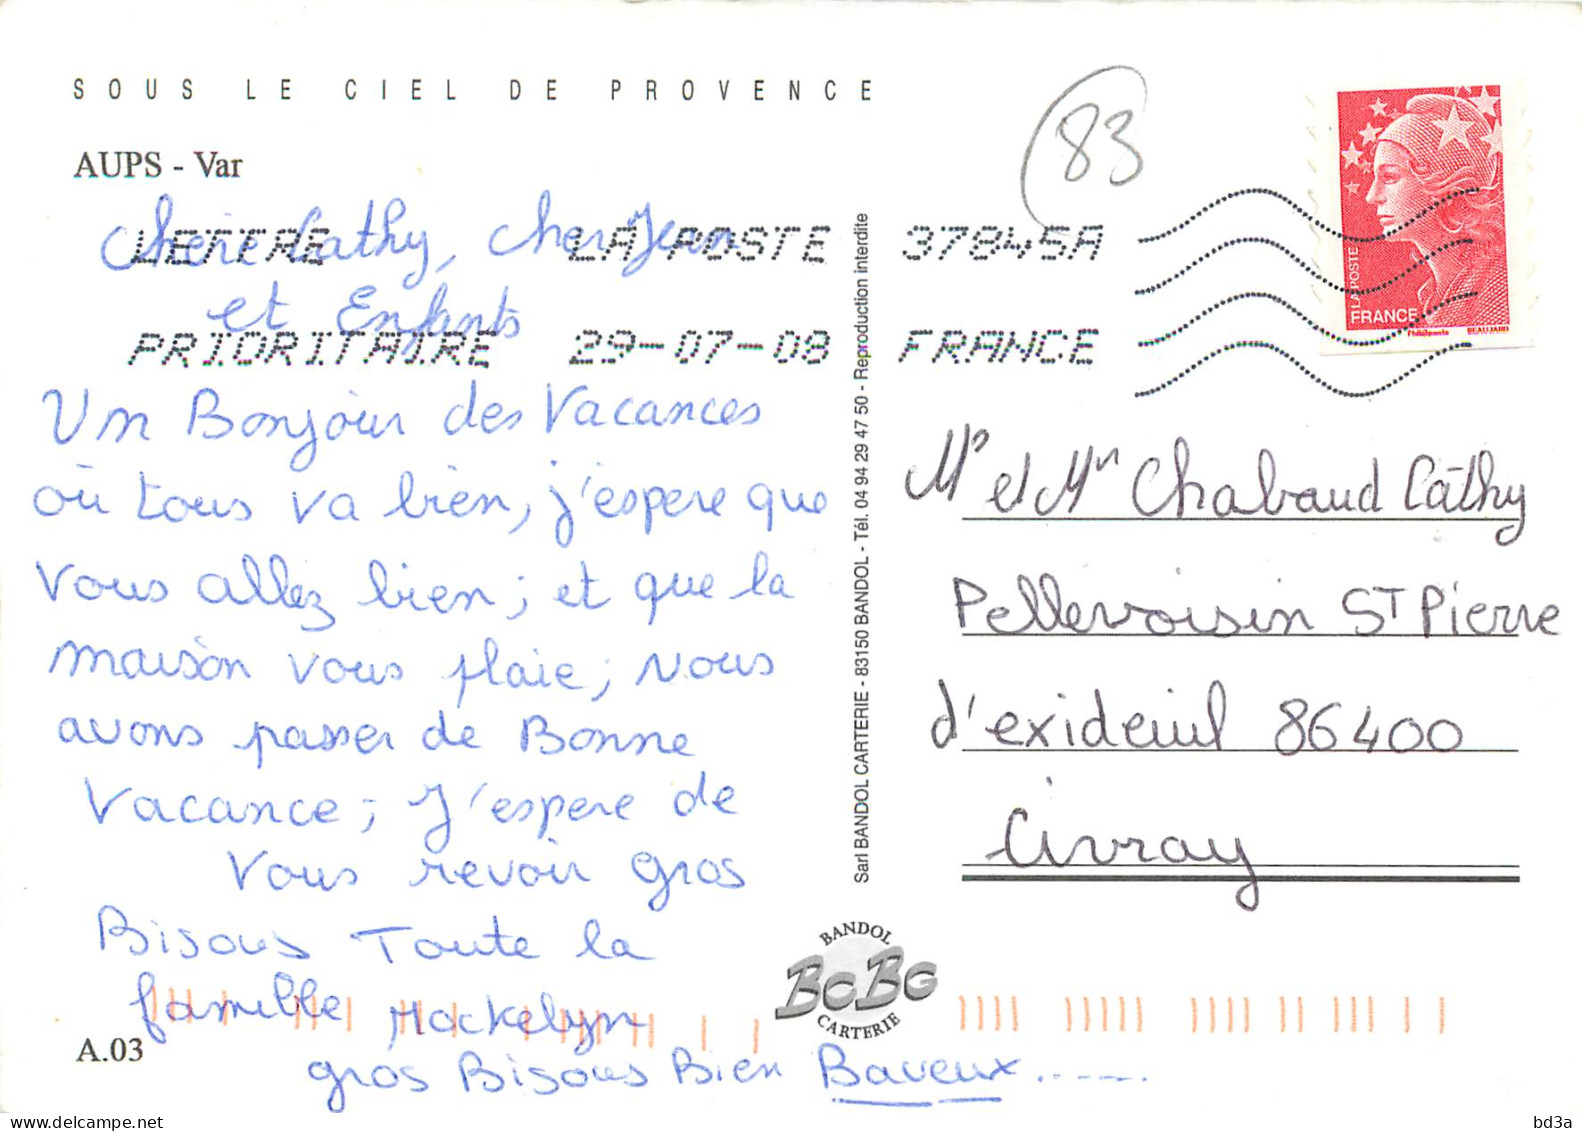 SOUS LE CIEL DE PROVENCE
AUPS - Var
83
LETTRE LA POSTE 37845A
PRIORITAIRE 29-07-08 FRANCE
LA POSTE
FRANCE
Philaposte BEAUJARD
Chère Cathy, cher Jean
et Enfants
Un Bonjour des Vacances
où tous va bien, j'espere que
vous allez bien; et que la
maison vous plaie; Nous
avons passer de Bonne
Vacance; J'espere de
Vous revoir gros
Bisous Toute la
famille Hockelyn
gros Bisous Bien Baveux......
A.03
Sarl BANDOL CARTERIE - 83150 BANDOL - Tél. 04 94 29 47 50 - Reproduction interdite
BANDOL
BCBG
CARTERIE
et Mr Chabaud Cathy
Pellevoisin ST Pierre
d'exideuil 86400
Civray
bd3a